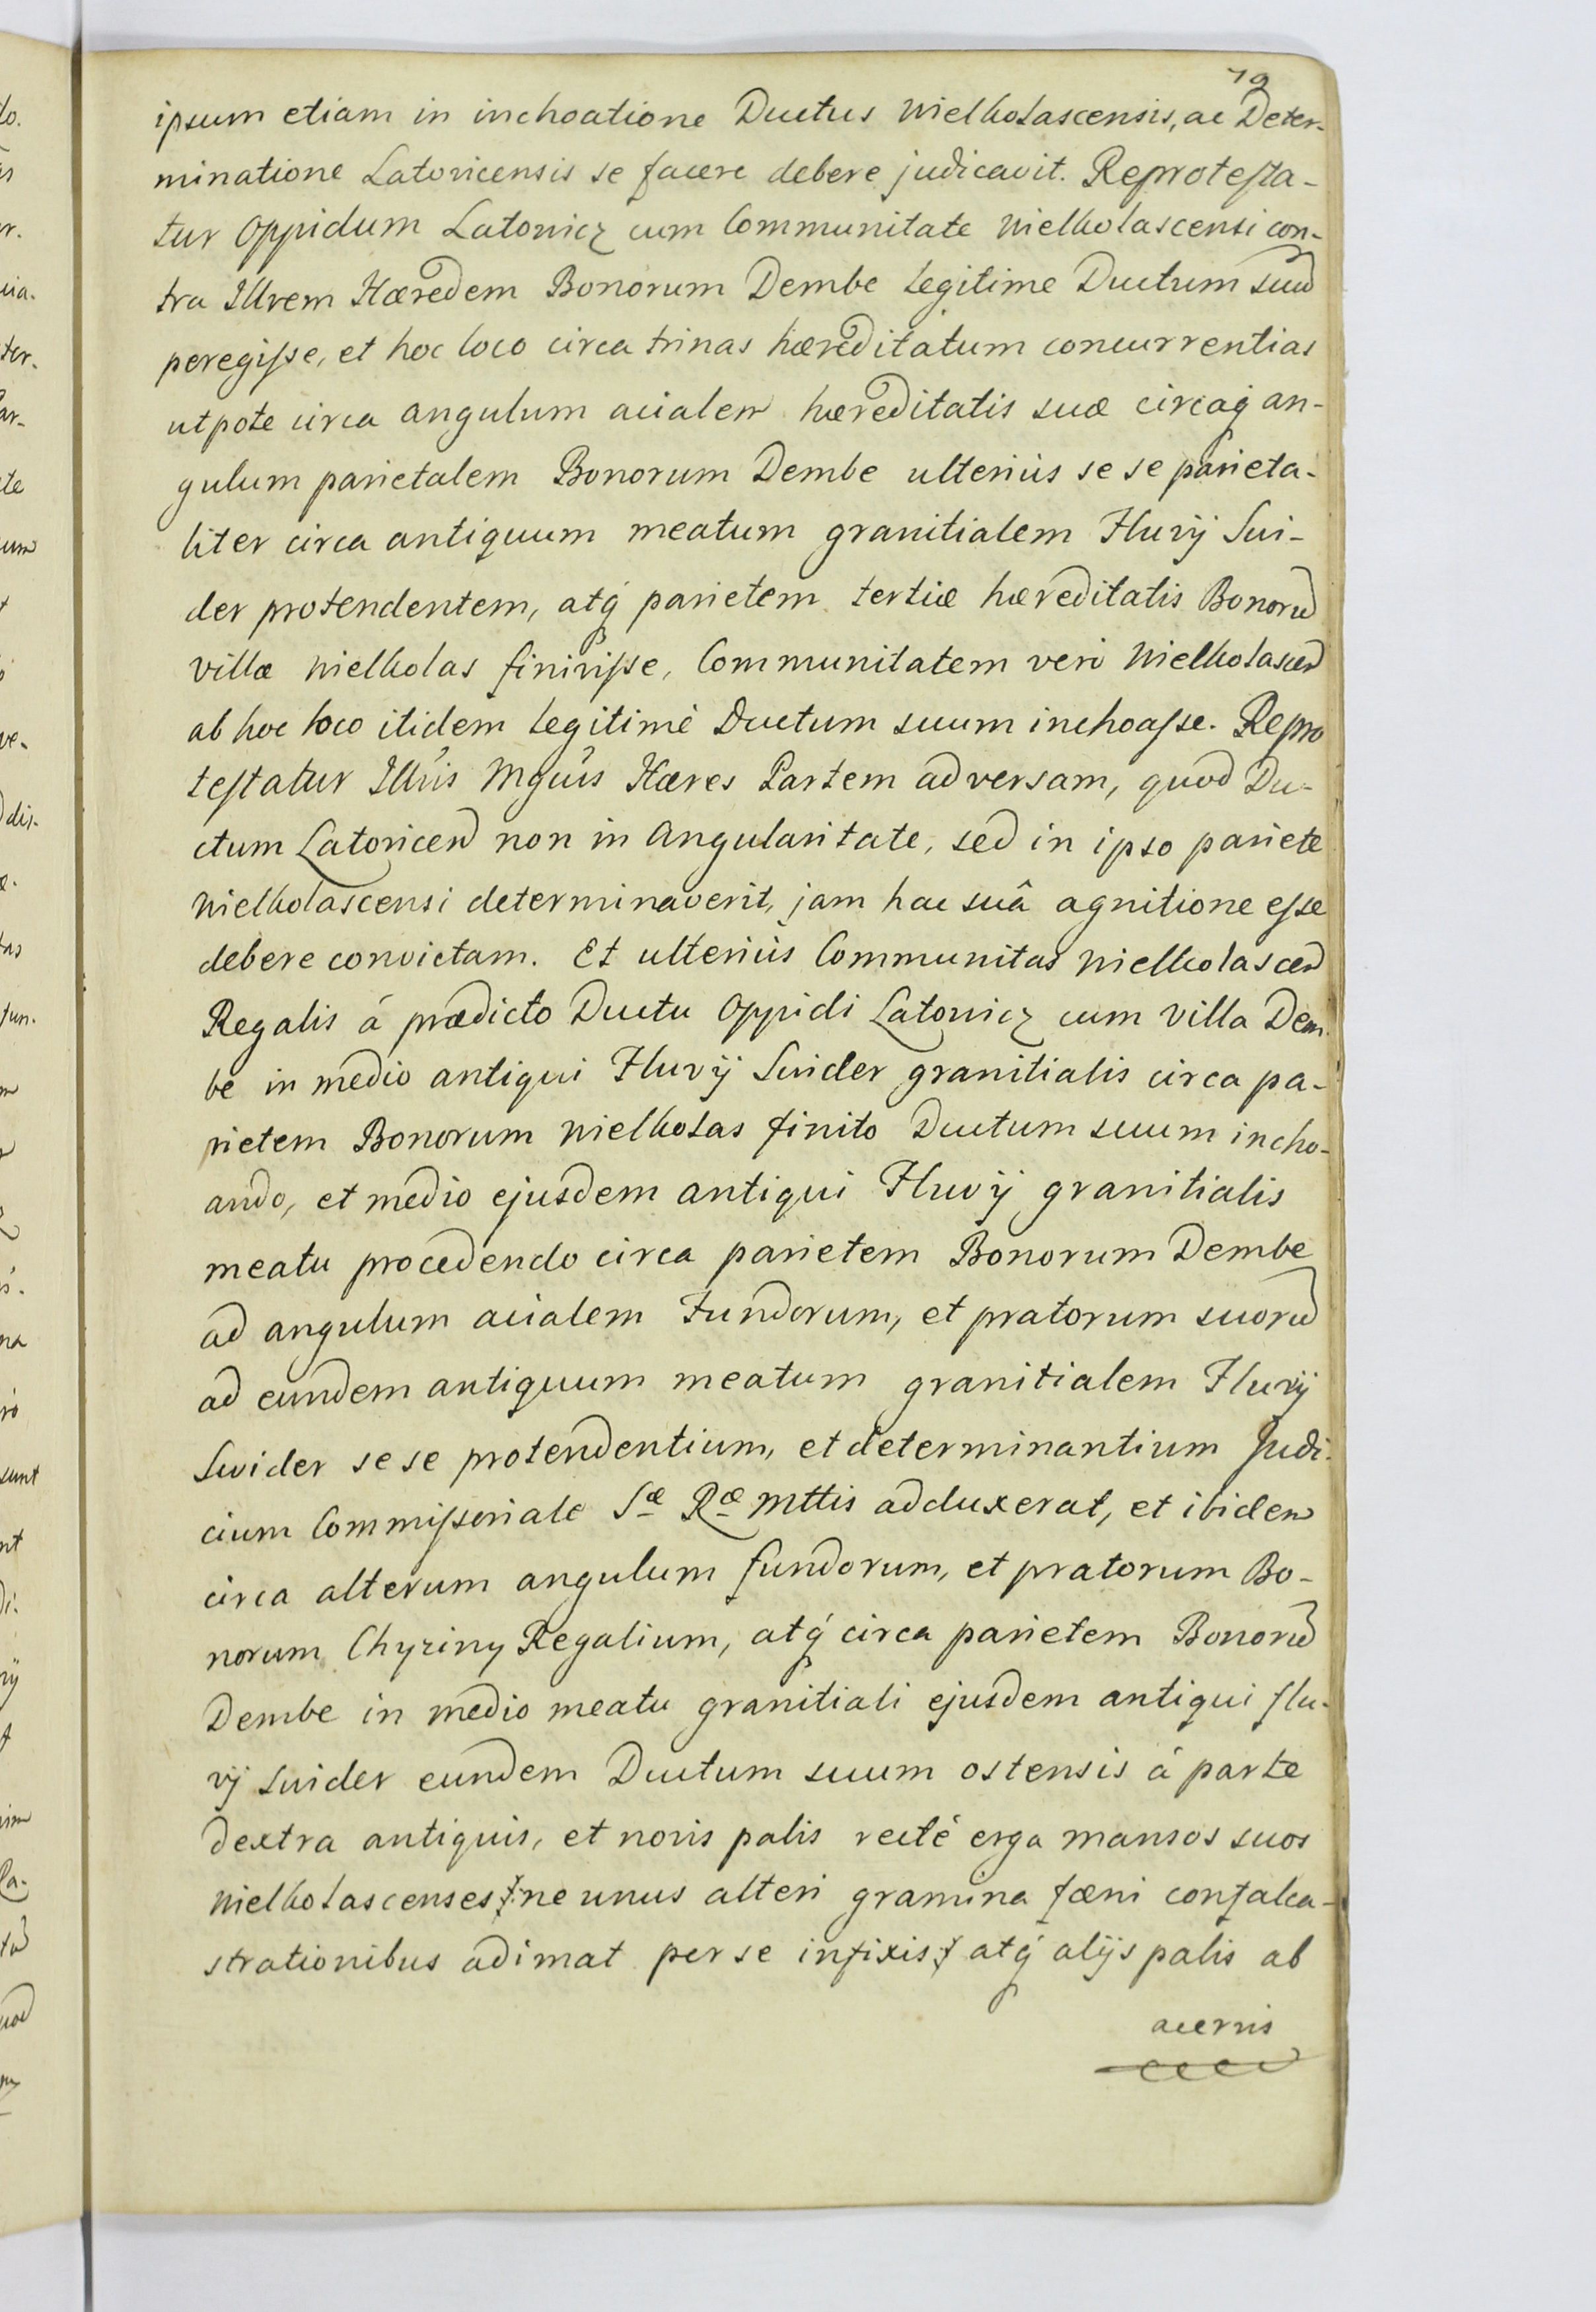 79
ipsum etiam in inchoatione Ductus Wielkolascensis, ac Deter-
minatione Latovicensis se facere debere judicavit. Reprotesta-
tur Oppidum Latowicz cum Communitate Wielkolascensi con-
tra Illrem Hæredem Bonorum Dembe legitime Ductum suū
peregisse, et hoc loco circa trinas hæreditatum concurrentias
utpote circa angulum acialem hæreditatis suæ circaq́ an-
gulum parietalem Bonorum Dembe ulterius se se parieta-
liter circa antiquum meatum granitialem Fluvij Swi-
der protendentem, atq́ parietem tertiæ hæreditatis Bonorū
villæ Wielkolas finivisse, Communitatem verò Wielkolascen̄
ab hoc loco itidem legitimè Ductum suum inchoasse. Repro
testatur Illris Mgcus Hæres Partem adversam, quod Du-
ctum Latovicen̄ non in Angularitate, sed in ipso pariete
Wielkolascensi determinaverit, jam hac suâ agnitione esse
debere convictam. Et ulterius Communitas Wielkolascen̄
Regalis á prædicto Ductu Oppidi Latowicz cum Villa Dem
be in medio antiqui Fluvij Swider granitialis circa pa-
rietem Bonorum Wielkolas finito Ductum suum incho-
ando, et medio ejusdem antiqui Fluvij granitialis
meatu procedendo circa parietem Bonorum Dembe
ad angulum acialem Fundorum, et pratorum suorū
ad eundem antiquum meatum granitialem Fluvij
Swider se se protendentium, et determinantium Judi-
cium Commissoriale Sæ Ræ Mttis adduxerat, et ibidem
circa alterum angulum fundorum, et pratorum Bo-
norum Chyziny Regalium, atq́ circa parietem Bonorū
Dembe in medio meatu granitiali ejusdem antiqui flu-
vij Swider eundem Ductum suum ostensis á parte
dextra antiquis, et novis palis recté erga mansos suos
Wielkolascenses ne unus alteri gramina fæni confalca-
strationibus adimat per se infixis atq́ alijs palis ab
acervis